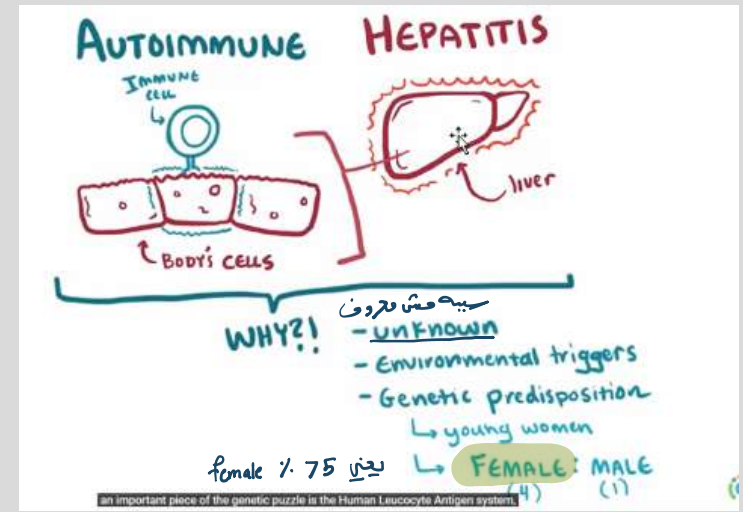 AUTOIMMUNE HEPATITIS
IMMUNE
CELL
liver
BODY'S CELLS
سببه مش معروف
WHY?!
- UNKNOWN
- Environmental triggers
- Genetic predisposition
↳ young women
female % 75 يعني ↳ FEMALE : MALE
(4) (1)
an important piece of the genetic puzzle is the Human Leucocyte Antigen system,